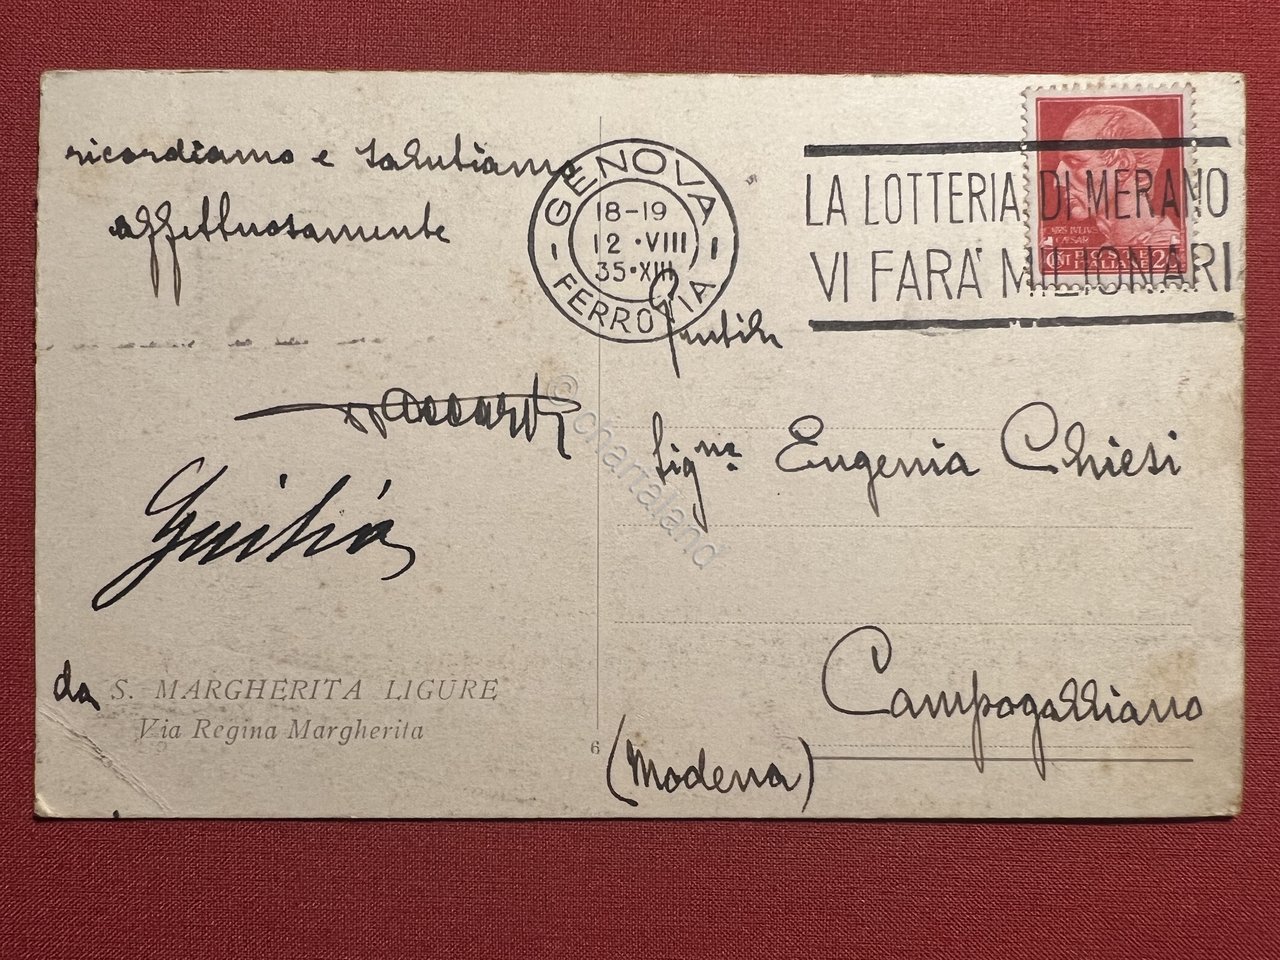 ricordiamo e salutiamo
affettuosamente
Giulia
da S. MARGHERITA LIGURE
Via Regina Margherita
6
GENOVA
18-19
12 • VIII
35 • XIII
FERROVIA
LA LOTTERIA DI MERANO
VI FARA' MILIONARI
IVLIVS
CAESAR
POSTE
ITALIANE 20
Gentile
Sig.na Eugenia Chiesi
Campogalliano
(Modena)
© chartaland